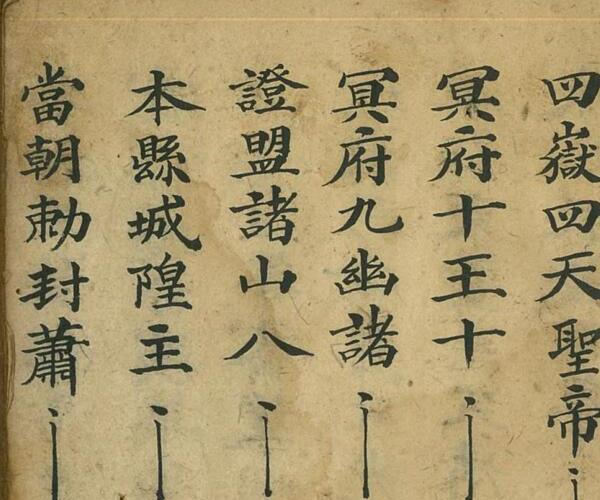 四嶽四天聖帝
冥府十王十
冥府九幽諸
證盟諸山八
本縣城隍主
當朝勅封蕭